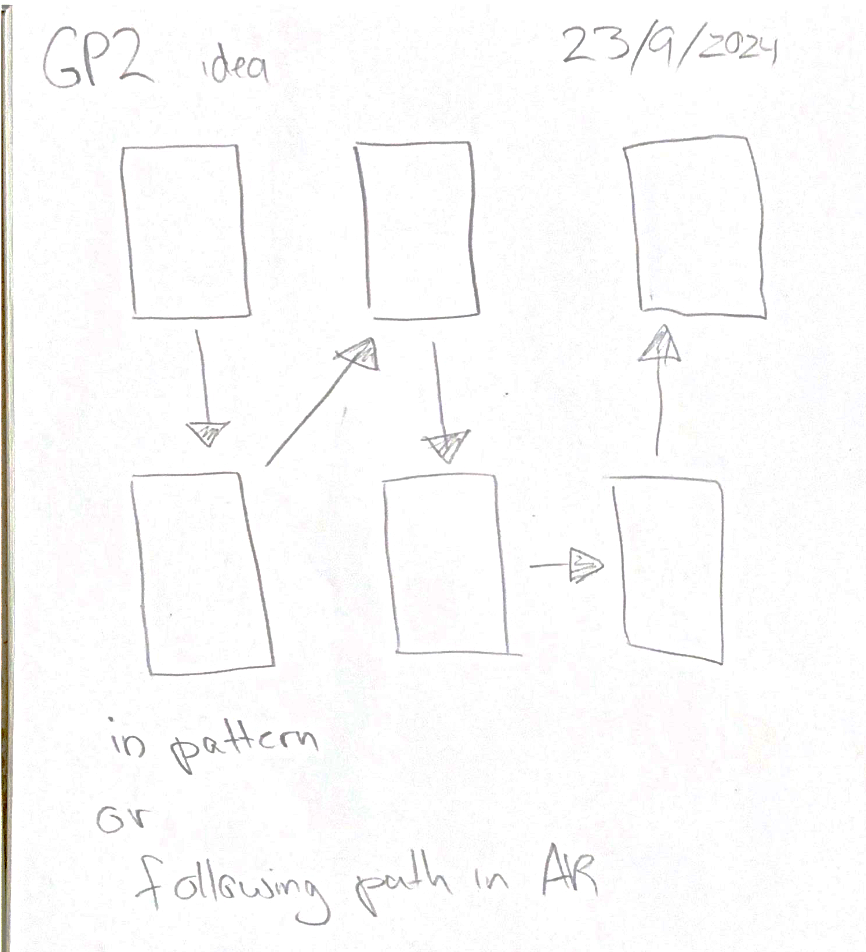 GP2 idea
23/9/2024
in pattern
or
following path in AR